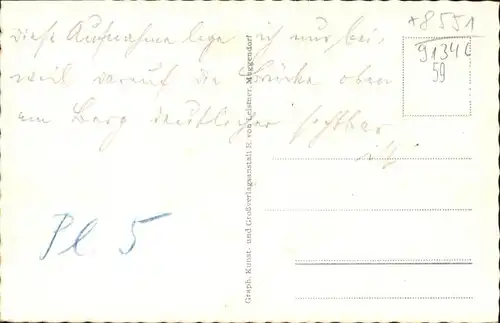 Diese Aufnahme lege ich nur bei,
weil darauf die Brücke oben
am Berg deutlicher sichtbar
ist
Pl 5
*8551
9134c
59
Graph. Kunst- und Großverlagsanstalt E. von Leistner, Muggendorf